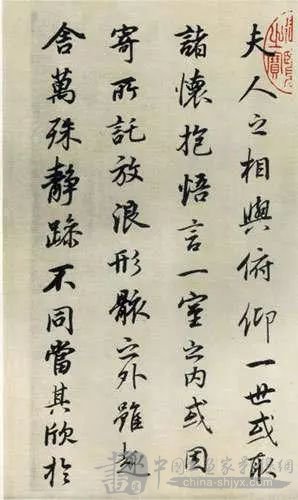 夫人之相與俯仰一世或取
諸懷抱悟言一室之內或因
寄所託放浪形骸之外雖趣
舍萬殊靜躁不同當其欣於
中国书画家艺术网
www.chinashjyx.com